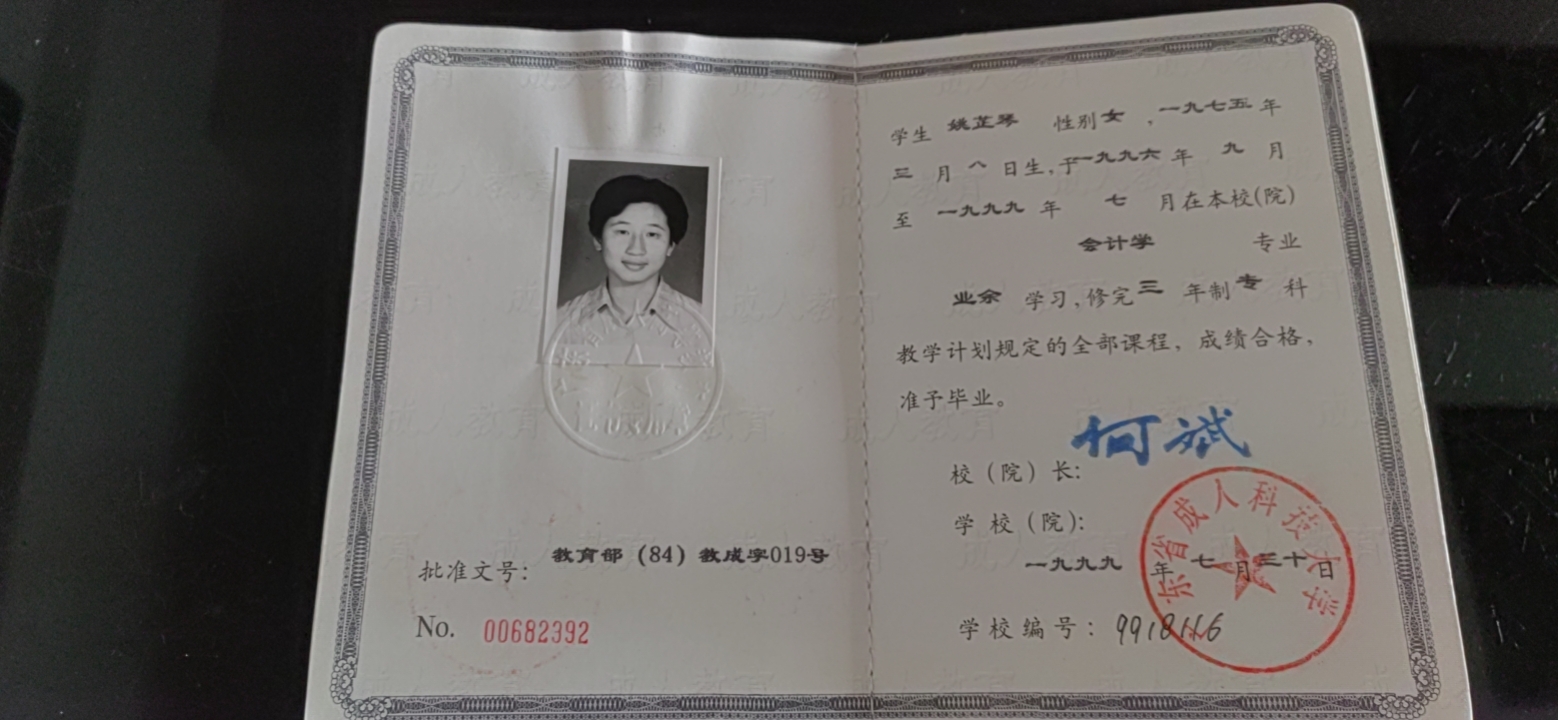 批准文号： 教育部（84）教成字019号
No. 00682392
学生 姚芷琴 性别 女 ，一九七五 年
三 月 八 日生，于一九九六 年 九 月
至 一九九九 年 七 月在本校(院)
会计学 专业
业余 学习，修完 三 年制 专 科
教学计划规定的全部课程，成绩合格，
准予毕业。
校（院）长： 何斌
学 校（院）：
东省成人科技大学
一九九九 年 七 月 三十 日
学校编号： 9918116